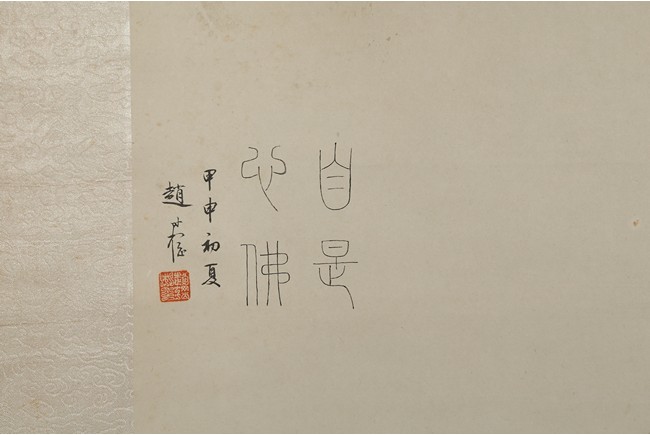 自是
心佛
甲申初夏
趙